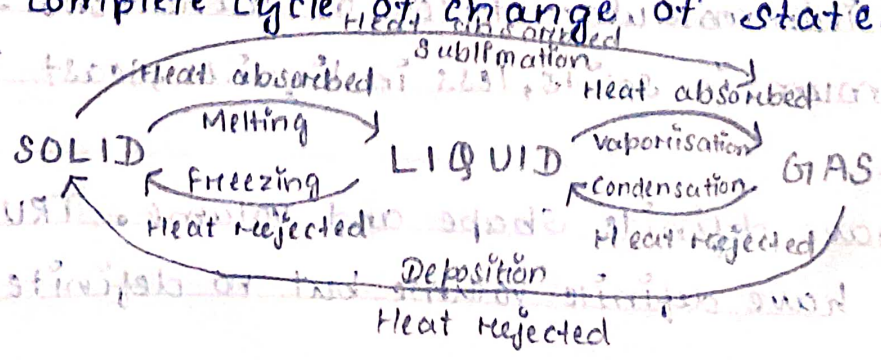 complete cycle of change of state
Heat absorbed
Sublimation
Heat absorbed
Heat absorbed
Melting
Vaporisation
SOLID
LIQUID
GAS
Freezing
Condensation
Heat rejected
Heat rejected
Deposition
Heat rejected